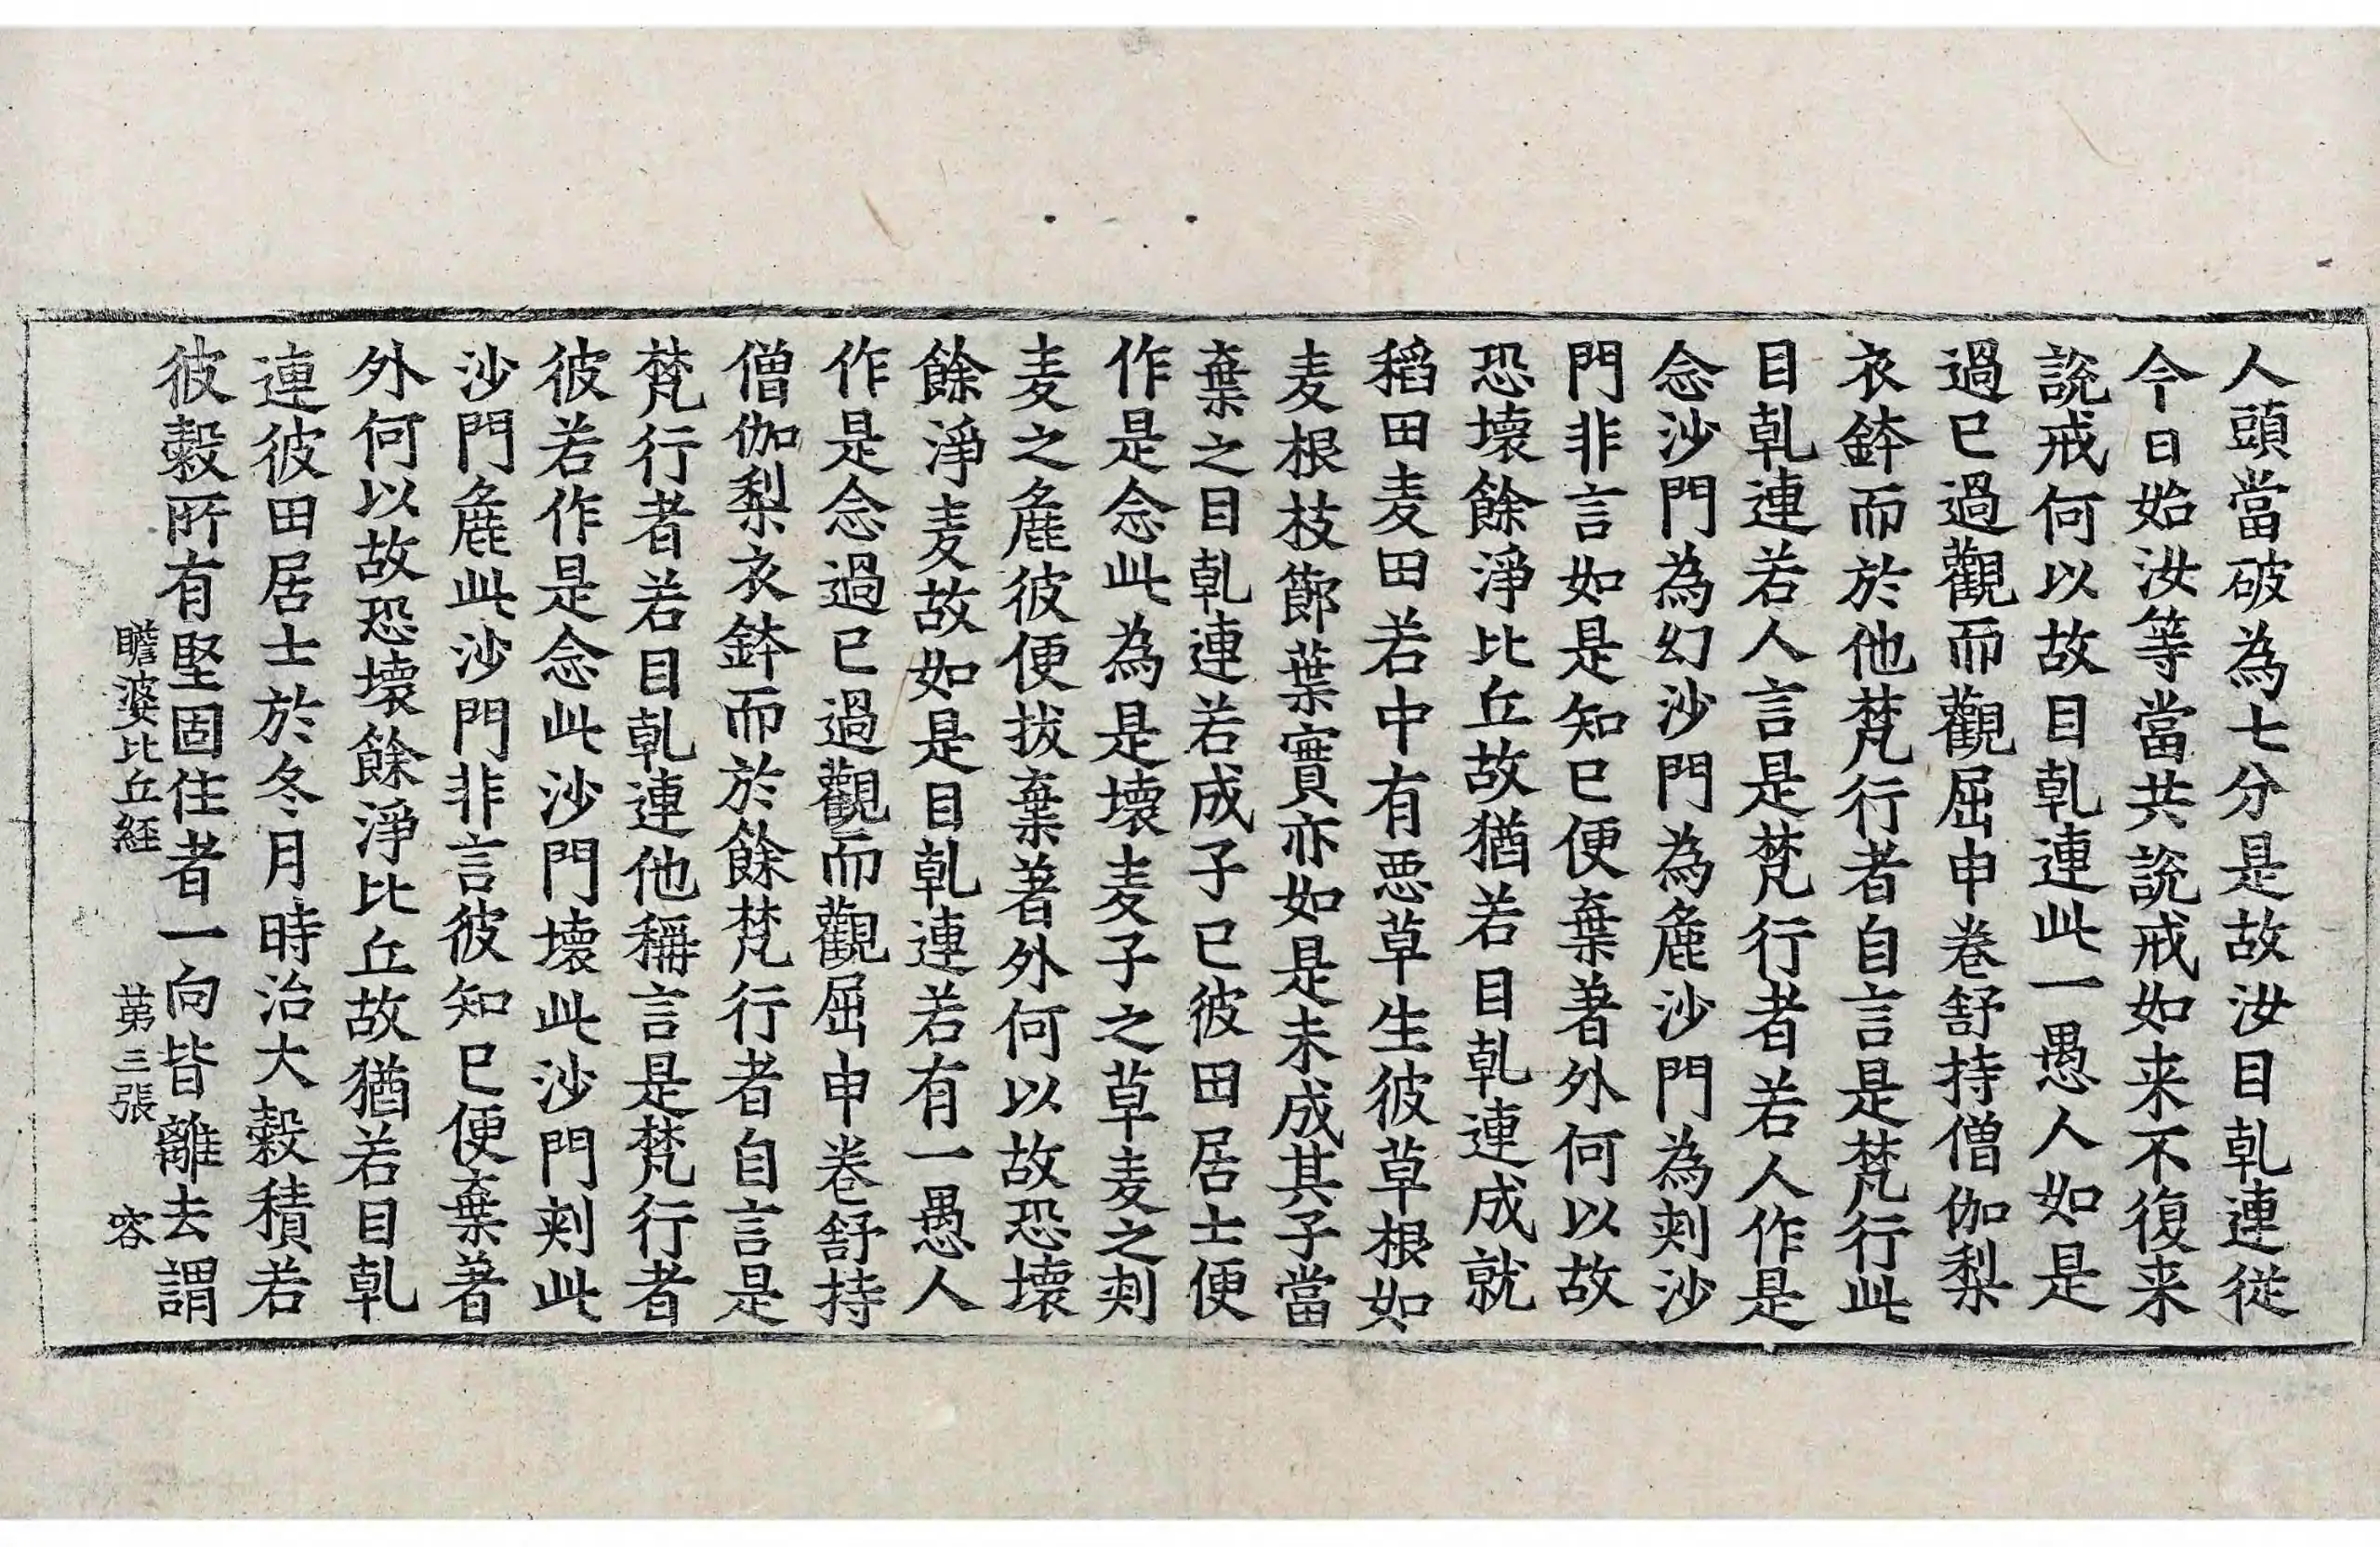 人頭當破為七分是故汝目乹連從
今日始汝等當共說戒如来不復来
說戒何以故目乹連此一愚人如是
過已過觀而觀屈申卷舒持僧伽梨
衣鉢而於他梵行者自言是梵行此
目乹連若人言是梵行者若人作是
念沙門為幻沙門為麁沙門為刾沙
門非言如是知已便棄著外何以故
恐壞餘淨比丘故猶若目乹連成就
稻田麦田若中有惡草生彼草根如
麦根枝莭葉實亦如是未成其子當
棄之目乹連若成子已彼田居士便
作是念此為是壞麦子之草麦之刾
麦之麁彼便拔棄著外何以故恐壞
餘淨麦故如是目乹連若有一愚人
作是念過已過觀而觀屈申卷舒持
僧伽梨衣鉢而於餘梵行者自言是
梵行者若目乹連他稱言是梵行者
彼若作是念此沙門壞此沙門刾此
沙門麁此沙門非言彼知已便棄著
外何以故恐壞餘淨比丘故猶若目乹
連彼田居士於冬月時治大穀積若
彼穀所有堅固住者一向皆離去謂
瞻婆比丘経 苐三張 容